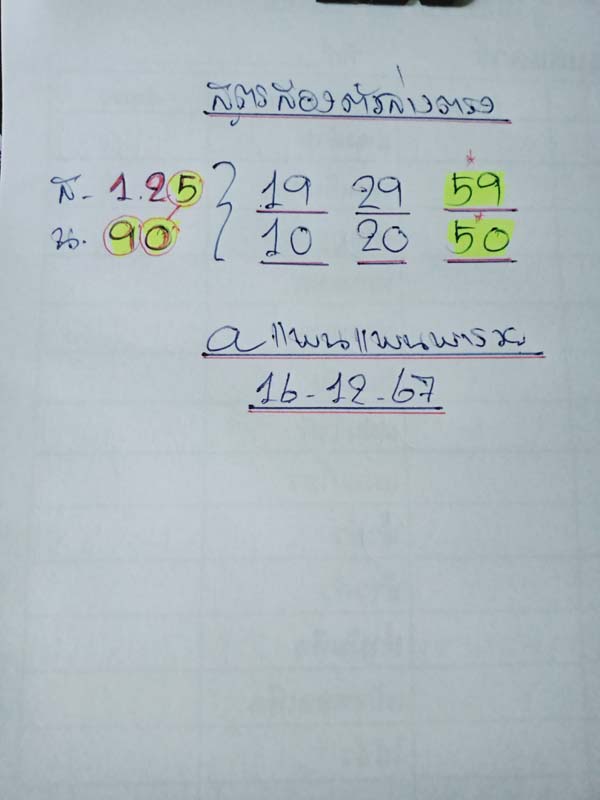 สูตรสองตัวล่างตรง
ส. 1.2 5 } 19 29 59
น. 90 10 20 50
a แพนแพนพารวย
16-12-67